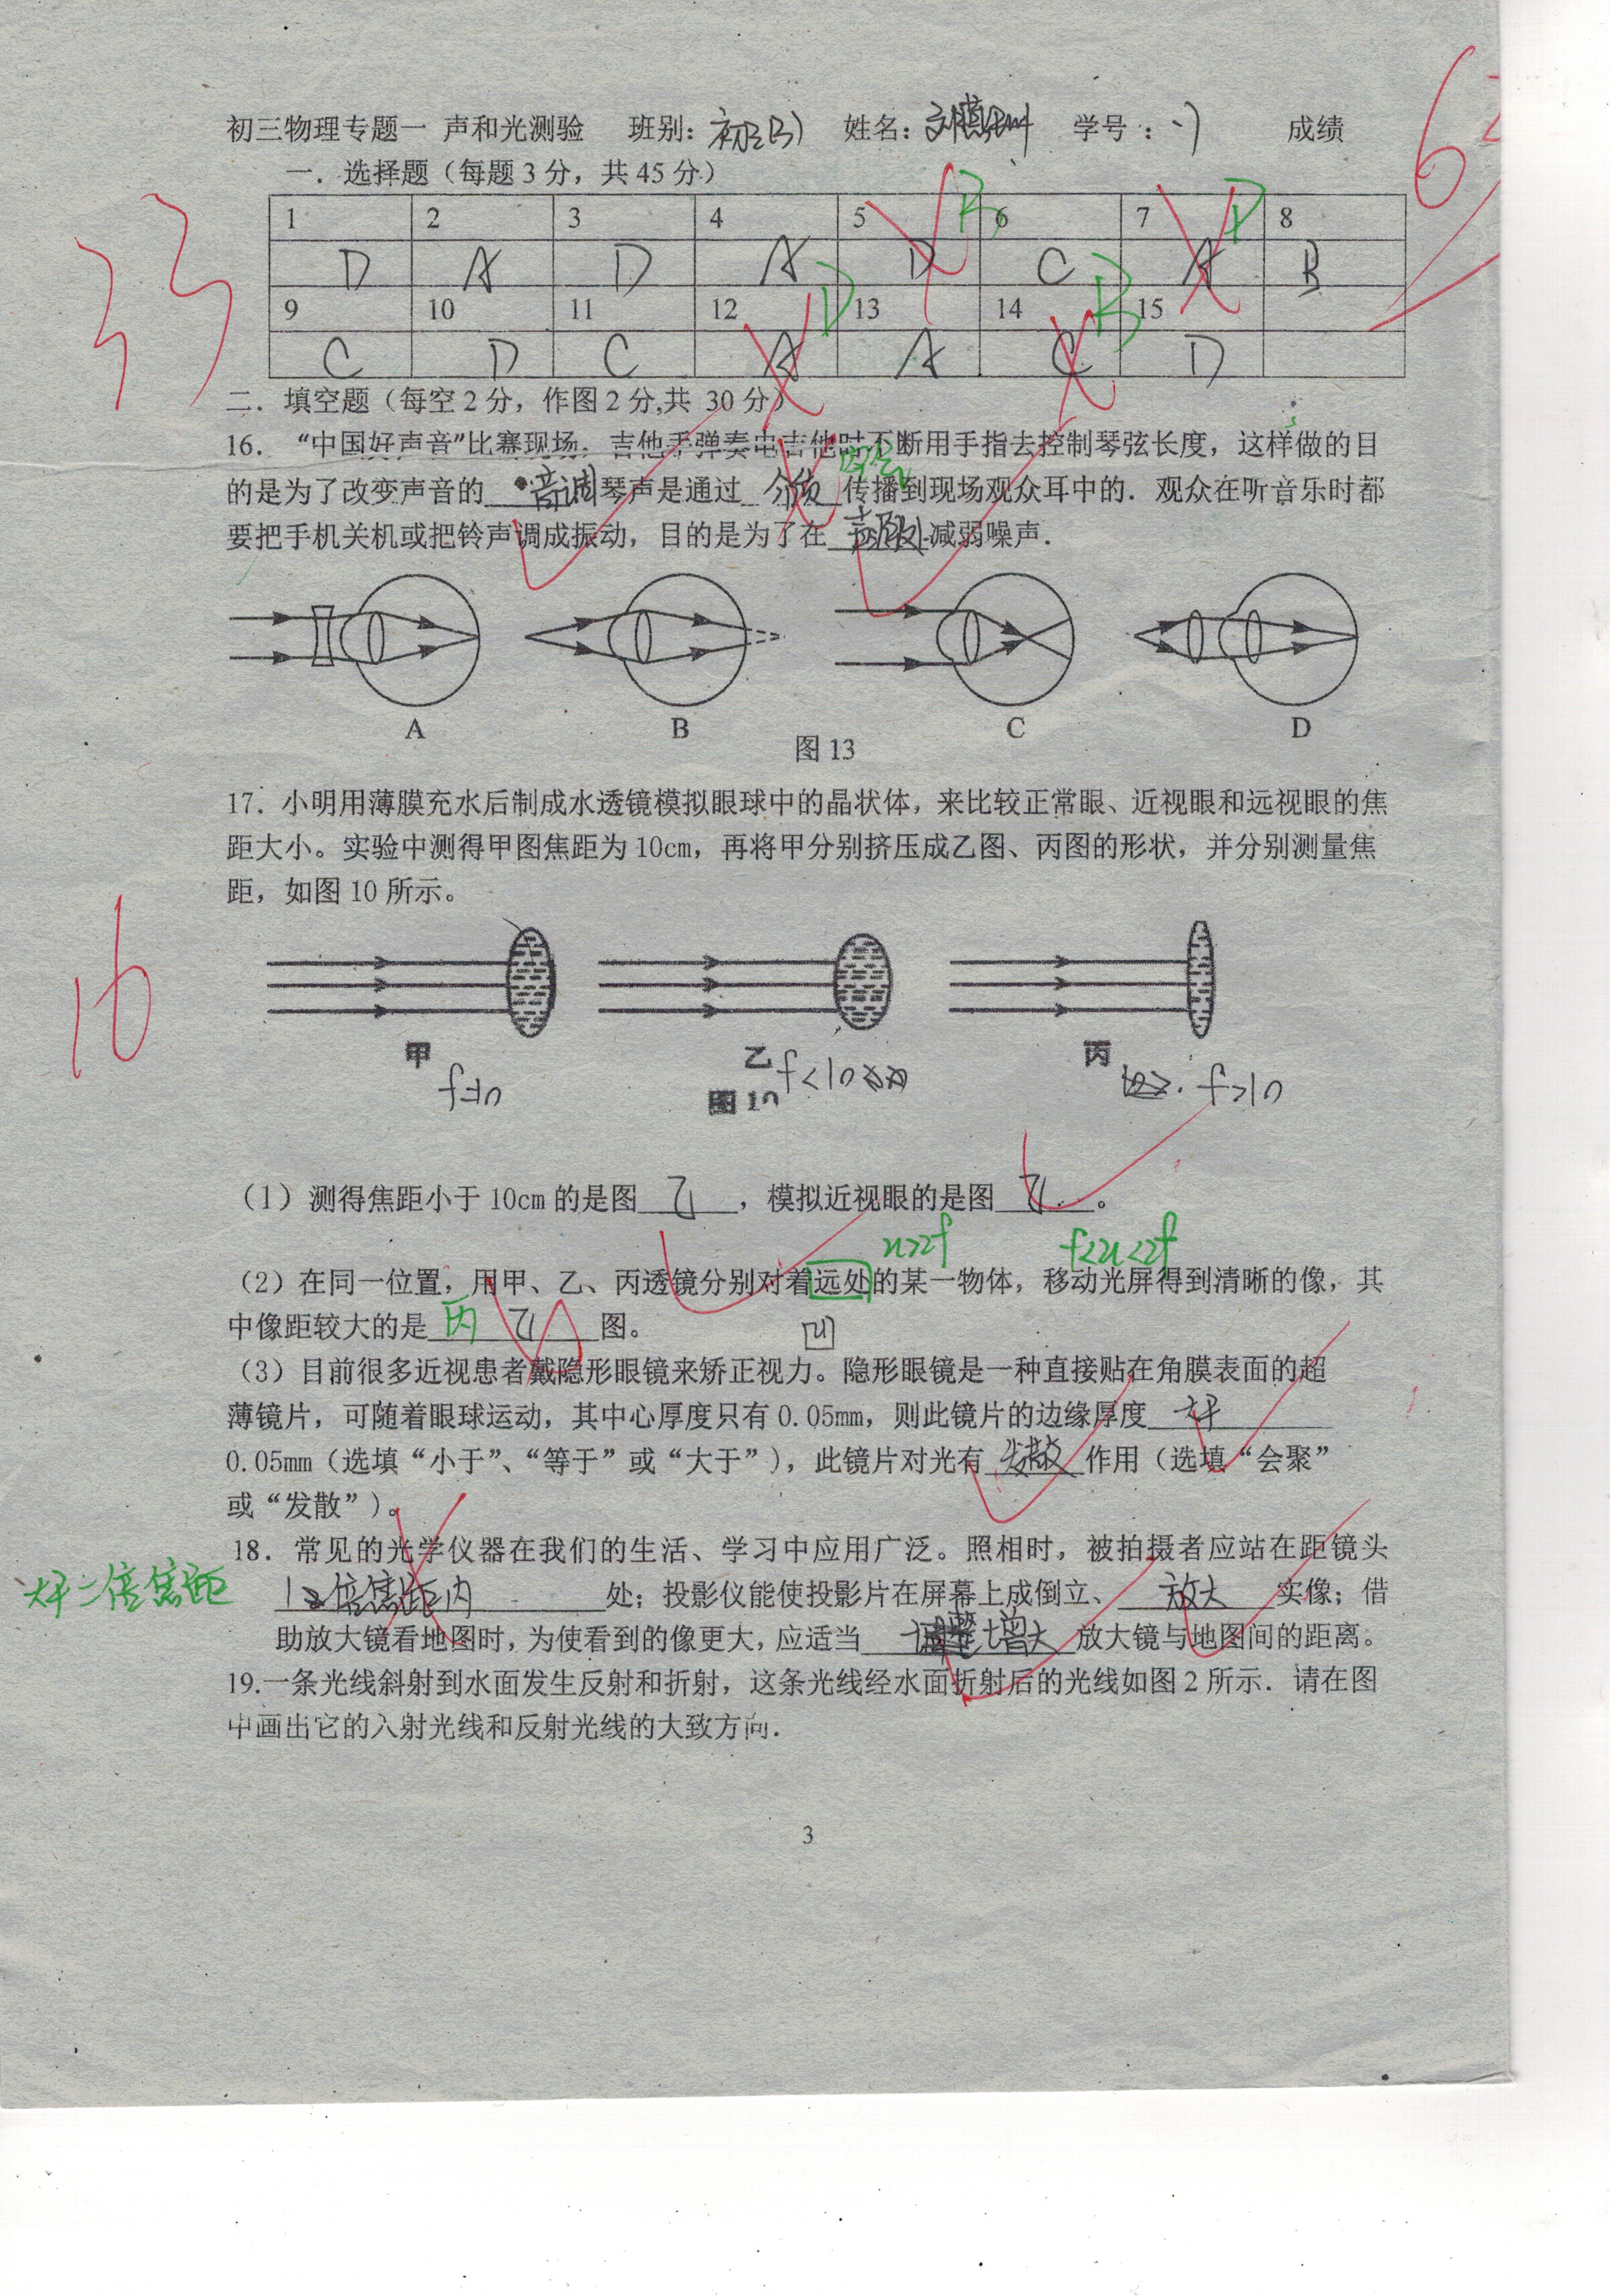 初三物理专题一 声和光测验 班别: 姓名: 学号: 成绩
一.选择题(每题3分,共45分)
33
1 2 3 4 5 B 6 7 D 8
D A D A D C A B
9 10 11 12 D 13 14 B 15
C D C A A C D
二.填空题(每空2分,作图2分,共 30分)
16. “中国好声音”比赛现场,吉他手弹奏电吉他时不断用手指去控制琴弦长度,这样做的目
的是为了改变声音的 音调 琴声是通过 介质 空气 传播到现场观众耳中的.观众在听音乐时都
要把手机关机或把铃声调成振动,目的是为了在 声源处 减弱噪声.
A B C D
图13
17. 小明用薄膜充水后制成水透镜模拟眼球中的晶状体,来比较正常眼、近视眼和远视眼的焦
距大小。实验中测得甲图焦距为10cm,再将甲分别挤压成乙图、丙图的形状,并分别测量焦
距,如图10所示。
16
甲 乙 丙
f=10 f<10 f>10
图10
(1)测得焦距小于10cm的是图 乙 ,模拟近视眼的是图 乙 。
u>2f f<u<2f
(2)在同一位置,用甲、乙、丙透镜分别对着远处的某一物体,移动光屏得到清晰的像,其
中像距较大的是 丙 乙 图。
凹
(3)目前很多近视患者戴隐形眼镜来矫正视力。隐形眼镜是一种直接贴在角膜表面的超
薄镜片,可随着眼球运动,其中心厚度只有0.05mm,则此镜片的边缘厚度 大于
0.05mm(选填“小于”、“等于”或“大于”),此镜片对光有 发散 作用(选填“会聚”
或“发散”)。
18. 常见的光学仪器在我们的生活、学习中应用广泛。照相时,被拍摄者应站在距镜头
大于二倍焦距 倍焦距内 处;投影仪能使投影片在屏幕上成倒立、 放大 实像;借
助放大镜看地图时,为使看到的像更大,应适当 增大 放大镜与地图间的距离。
19.一条光线斜射到水面发生反射和折射,这条光线经水面折射后的光线如图2所示.请在图
中画出它的入射光线和反射光线的大致方向.
3